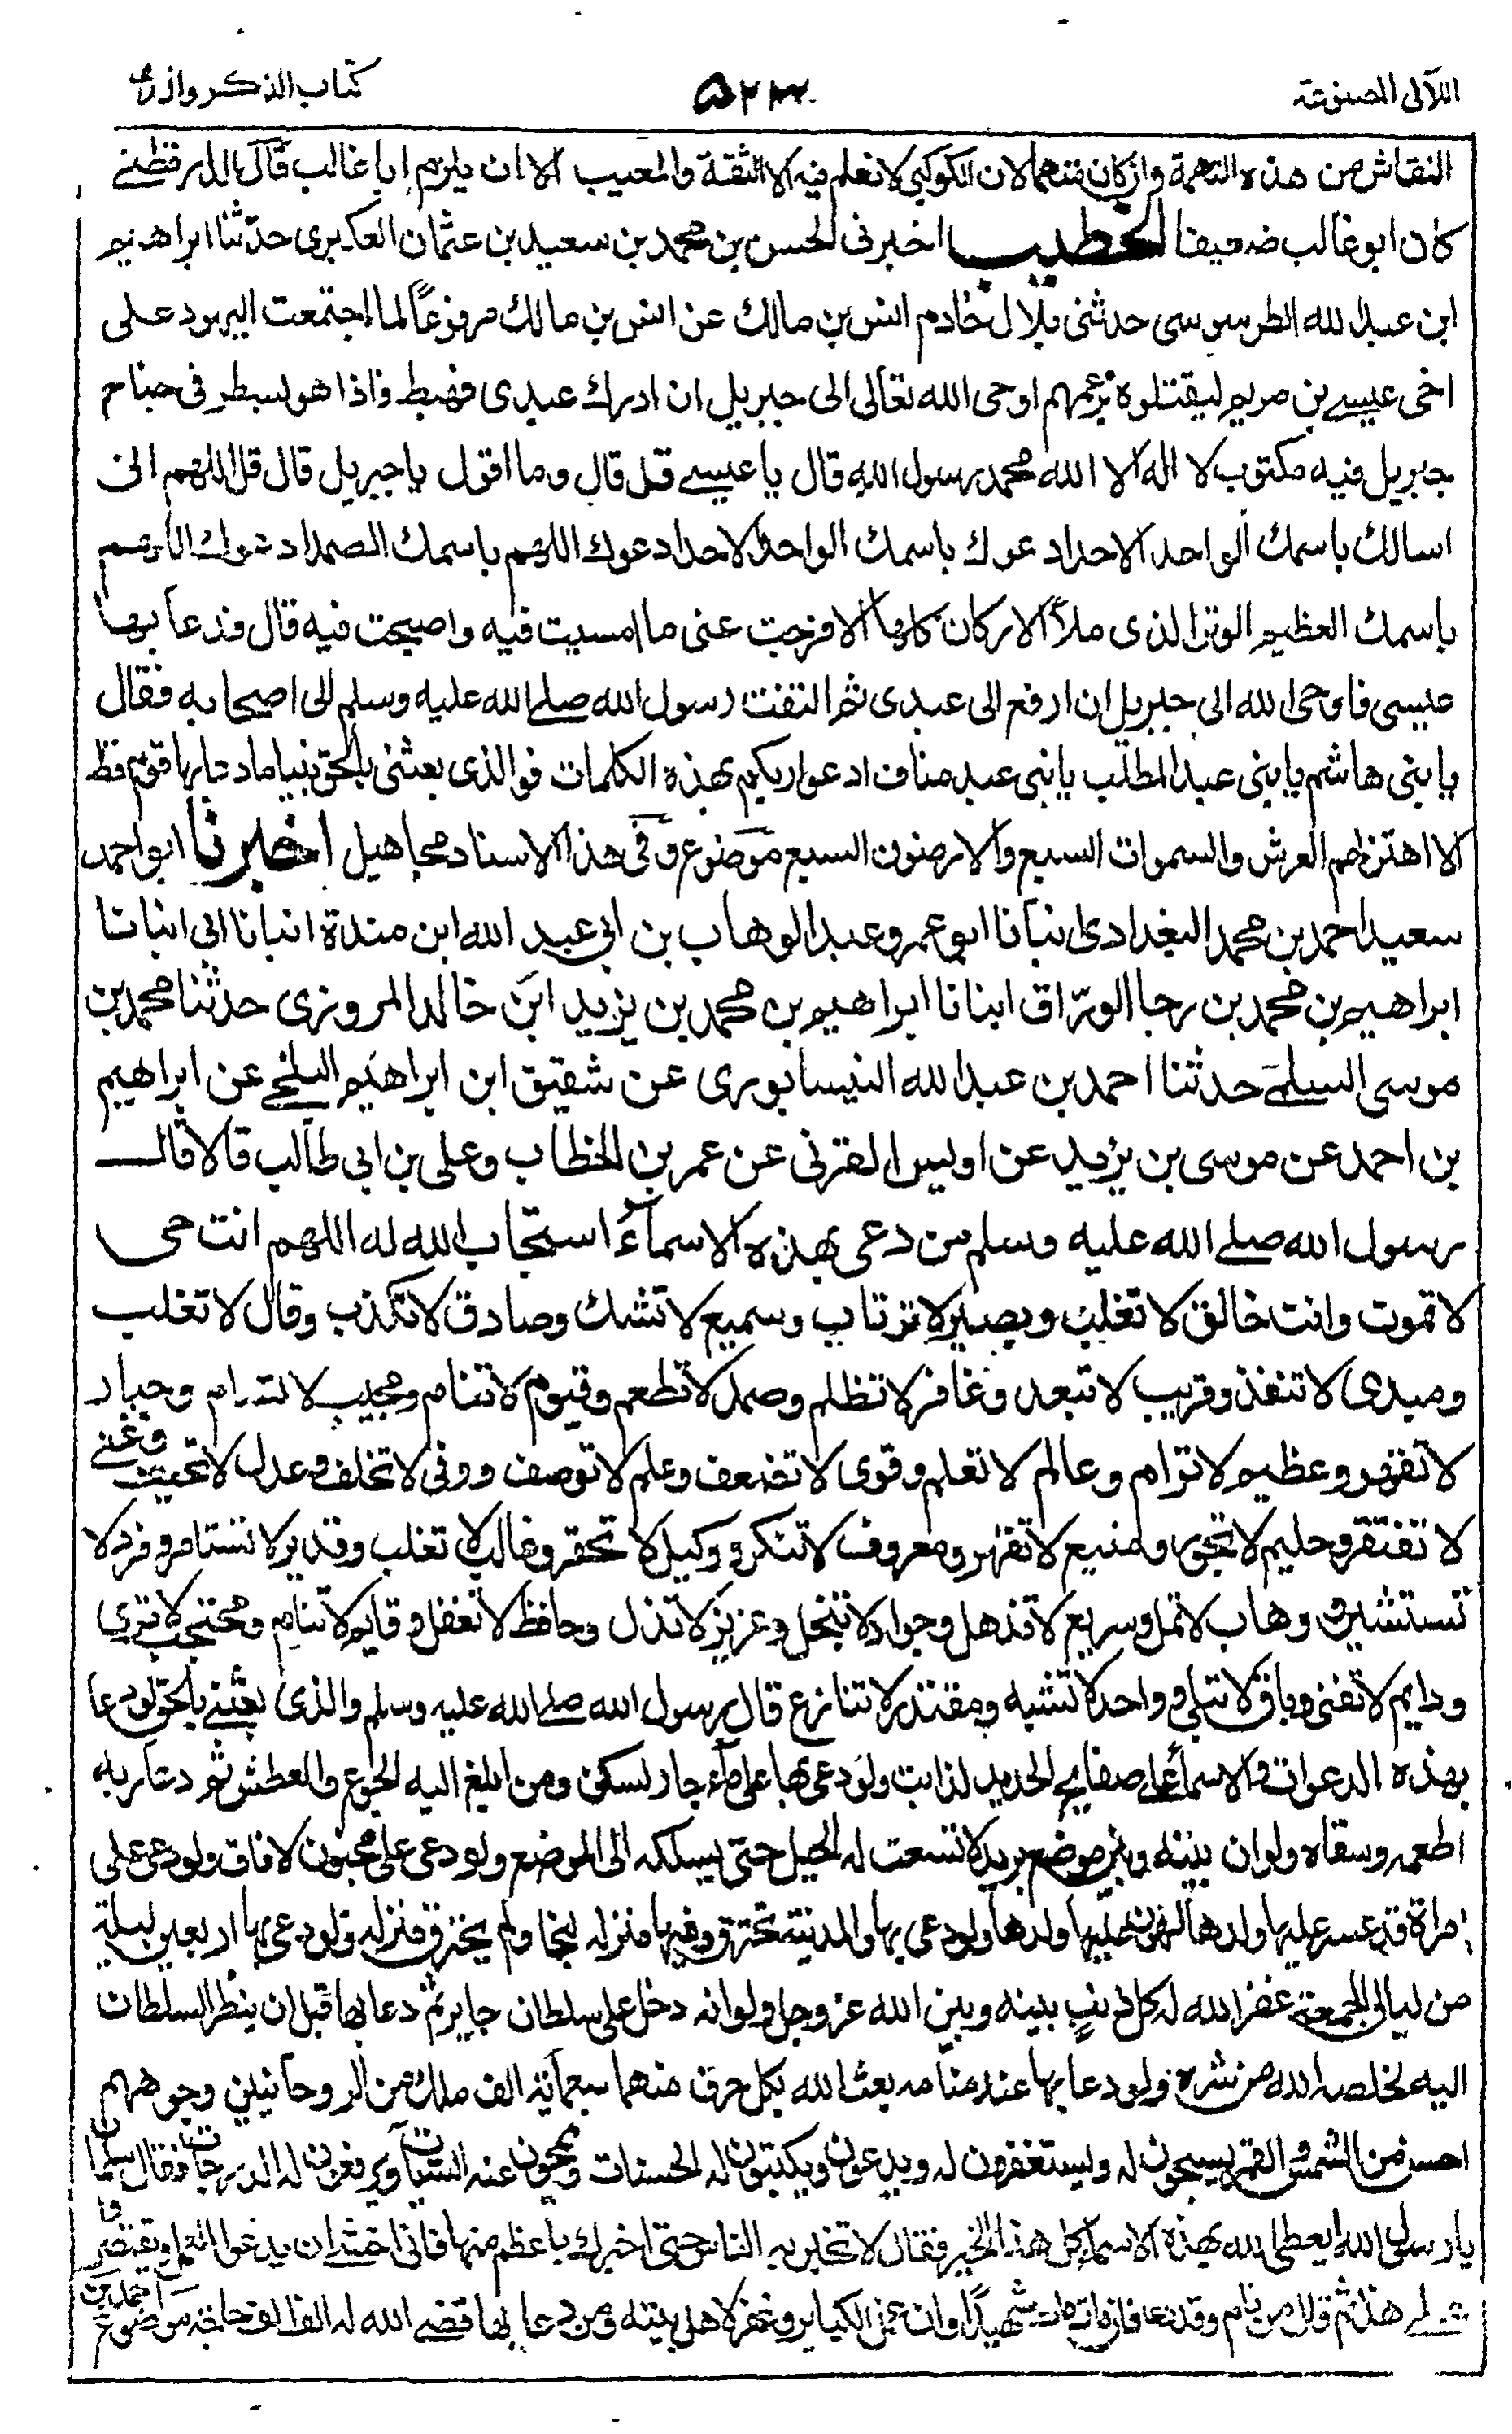 اللآلى المصنوعة ٥٢٣ كتاب الذكر والدعاء
النقاش من هذه التهمة وان كان متهما لان الكوكبي لا نعلم فيه الا الثقة والمعيب الا ان يلزم ابا غالب قال الدارقطنے
كان ابو غالب ضعيفا الخطيب اخبرنى الحسن بن محمد بن سعيد بن عثمان العكبرى حدثنا ابراهيم
ابن عبد الله الطرسوسى حدثنى بلال خادم انس بن مالك عن انس بن مالك مرفوعًا لما اجتمعت اليهود على
اخى عيسے بن مريم ليقتلوه بزعمهم اوحى الله تعالى الى جبريل ان ادرك عبدى فهبط فاذا هو بسطر فى جناح
جبريل فيه مكتوب لا اله الا الله محمد رسول الله قال يا عيسے قل قال وما اقول يا جبريل قال قل اللهم انى
اسالك باسمك الواحد الاحد ادعوك باسمك الواحد الاحد ادعوك اللهم باسمك الصمد ادعوك اللهم
باسمك العظيم الوتر الذى ملأ الاركان كلها الا فرجت عنى ما امسيت فيه واصبحت فيه قال فدعا بها
عيسى فاوحى الله الى جبريل ان ارفع الى عبدى ثم التفت رسول الله صلے الله عليه وسلم الى اصحابه فقال
يا بنى هاشم يا بنى عبد المطلب يا بنى عبد مناف ادعوا ربكم بهذه الكلمات فوالذى بعثنى بالحق نبيا ما دعا بها قوم قط
الا اهتز لهم العرش والسموات السبع والارضون السبع موضوع وفى هذا الاسناد مجاهيل اخبرنا ابو احمد
سعيد احمد بن محمد البغدادى نبأنا ابو عمرو عبد الوهاب بن ابى عبد الله ابن مندة انبانا ابى انبانا
ابراهيم بن محمد بن رجا الورّاق انبانا ابراهيم بن محمد بن يزيد ابن خالد المروزى حدثنا محمد بن
موسى السلمے حدثنا احمد بن عبد الله النيسابورى عن شقيق ابن ابراهيم البلخے عن ابراهيم
بن احمد عن موسى بن يزيد عن اويس القرنى عن عمر بن الخطاب وعلى بن ابى طالب قالا قال
رسول الله صلے الله عليه وسلم من دعى بهذه الاسماء استجاب الله له اللهم انت حى
لا تموت وانت خالق لا تغلب وبصير لا ترتاب وسميع لا تشك وصادق لا تكذب وقال لا تغلب
وميدى لا تنفذ وقريب لا تبعد وغافر لا تظلم وصمد لا تطعم وقيوم لا تنام ومجيب لا تسام وجبار
لا تقهر وعظيم لا ترام وعالم لا تعلم وقوى لا تضعف وعلم لا توصف ووفى لا تخلف وعدل لا تحيف وغنے
لا تفتقر وحليم لا تجور ومنيع لا تقهر ومعروف لا تنكر ووكيل لا تحقر وغالب لا تغلب وقدير لا تستامر وفرد لا
تستشير ووهاب لا تمل وسريع لا تذهل وجواد لا تبخل وعزيز لا تذل وحافظ لا تغفل وقايم لا تنام ومحتجب لا ترى
ودايم لا تفنى وباق لا تبلى وواحد لا تشبه ومقتدر لا تنازع قال رسول الله صلے الله عليه وسلم والذى بعثنے بالحق لو دعا
بهذه الدعوات والاسماء على صفايح الحديد لذابت ولو دعى بها على ماء جار لسكن ومن ابلغ اليه الجوع والعطش ثم دعا ربه
اطعمه وسقاه ولو ان بينه وبين موضع يريد لا تسعت له الجبل حتى يسلكه الى الموضع ولو دعى على مجنون لافاق ولو دعى على
امراة قد عسر عليها ولدها لهون عليها ولدها ولو دعى بها والمدينة تحترق وفيها منزله لنجا ولم يحترق منزله ولو دعى بها اربعين ليلة
من ليالى الجمعة غفر الله له كل ذنب بينه وبين الله عز وجل ولو انه دخل على سلطان جاير ثم دعا بها قبل ان ينظر السلطان
اليه لخلصه الله من شره ولو دعا بها عند منامه بعث الله بكل حرف منها سبعمائة الف ملك من الروحانيين وجوههم
احسن من الشمس والقمر يسبحون له ويستغفرون له ويدعون ويكتبون له الحسنات ويمحون عنه السيئات ويرفعون له الدرجات فقال سلمان
يا رسول الله ايعطى الله بهذه الاسماء كل هذا الخير فقال لا تخبر به الناس حتى اخبرك باعظم منها فانى اخشى ان يدعوا العمل ويقتصروا
على هذا ثم قال من نام وقد دعا فان مات مات شهيدًا وان عمل الكباير وغفر لاهل بيته ومن دعا بها قضے الله له الف الف حاجة موضوع احمد بن